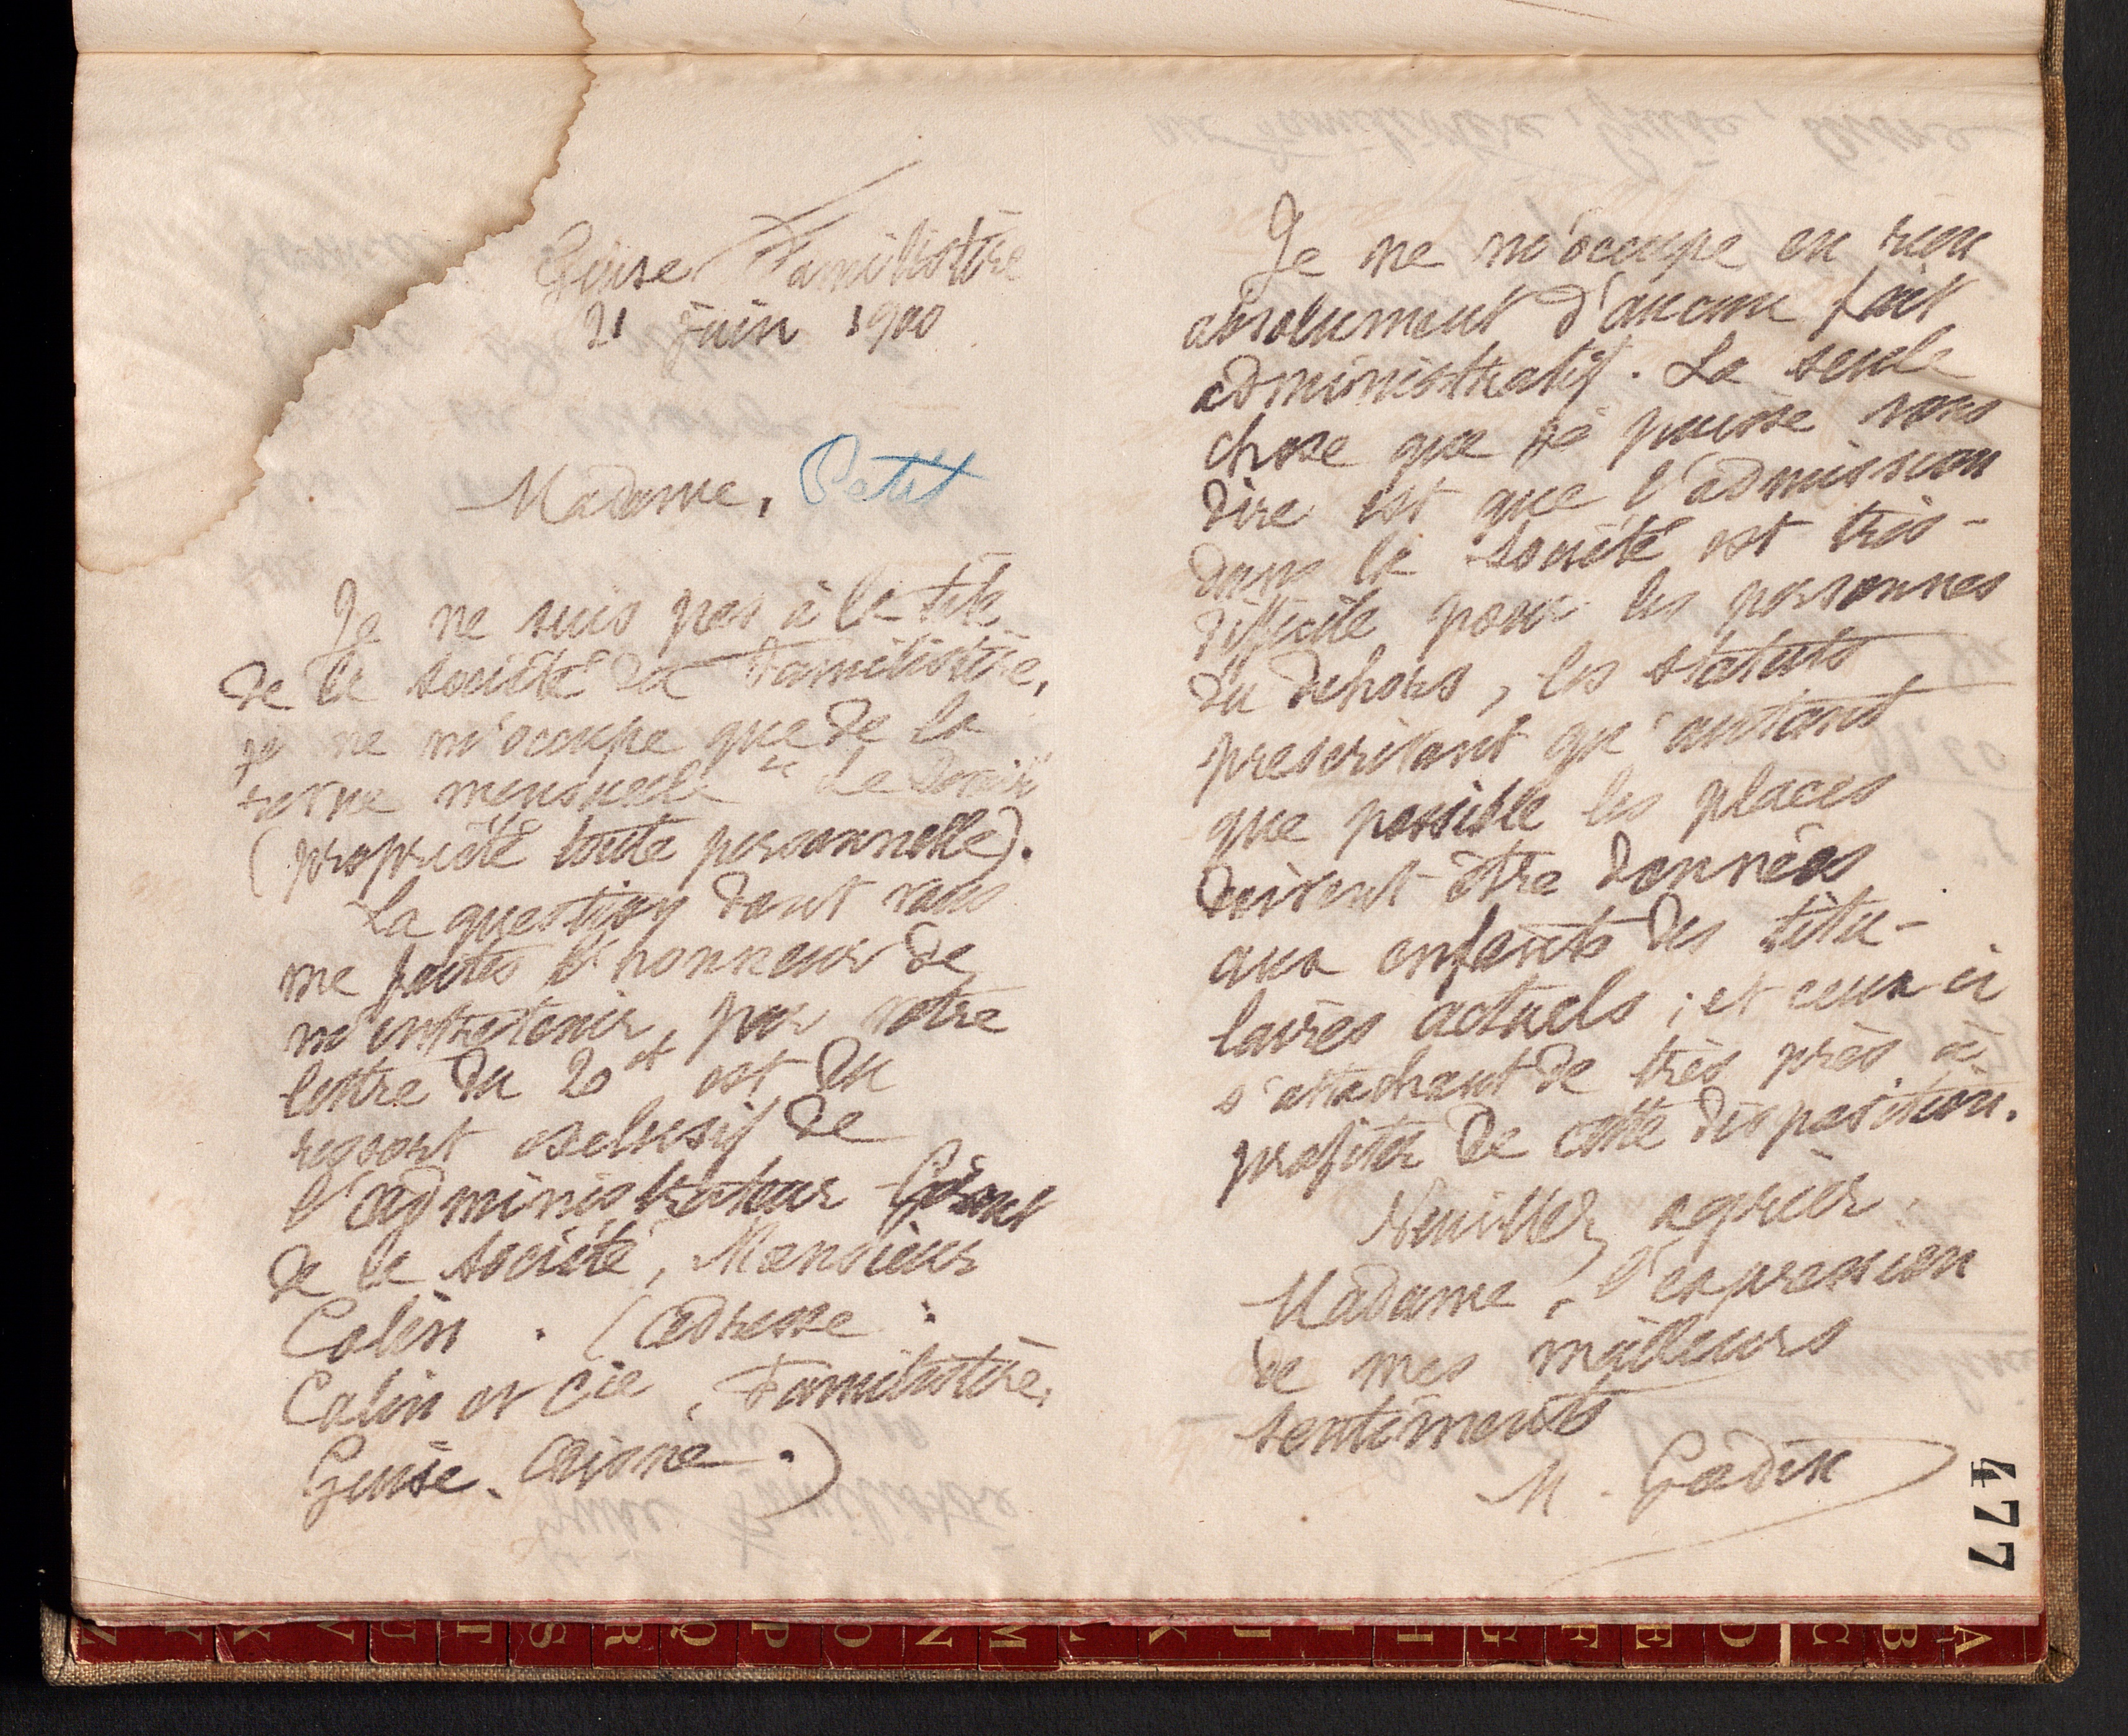 Guise Familistère
21 juin 1900
Madame, Petit
Je ne suis pas à la tête
de la société du Familistère,
je ne m'occupe que de la
revue mensuelle "Le Devoir"
(propriété toute personnelle).
La question dont vous
me faites l'honneur de
m'entretenir, par votre
lettre du 20 ct est du
ressort exclusif de
l'administrateur Gérant
de la société, Monsieur
Colin. (adresse :
Colin et Cie, Familistère,
Guise. Aisne.)
Je ne m'occupe en rien
absolument d'aucun fait
administratif. La seule
chose que je puisse vous
dire est que l'admission
dans la Société est très-
difficile pour les personnes
du dehors, les statuts
prescrivant qu'autant
que possible les places
doivent être données
aux enfants des titu-
laires actuels ; et ceux-ci
s'attachant de très près à
profiter de cette disposition.
Veuillez agréer
Madame, l'expression
de mes meilleurs
sentiments
M. Godin
477
Z Y X V U T S R Q P O N M L K J I H G F E D C B A